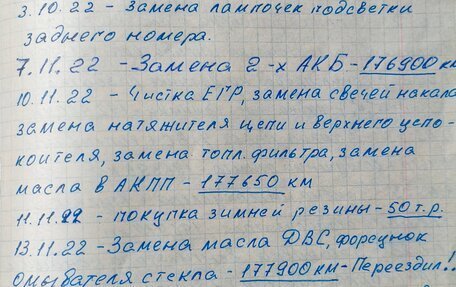 3.10.22 - Замена лампочек подсветки
заднего номера.
7.11.22 - Замена 2-х АКБ - 176900 км
10.11.22 - Чистка ЕГР, замена свечей накала
замена натяжителя цепи и верхнего успо-
коителя, замена топл. фильтра, замена
масла в АКПП - 177650 км
11.11.22 - покупка зимней резины - 50 т.р.
13.11.22 - Замена масла ДВС, форсунок
омывателя стекла - 177900 км - Переездил!!